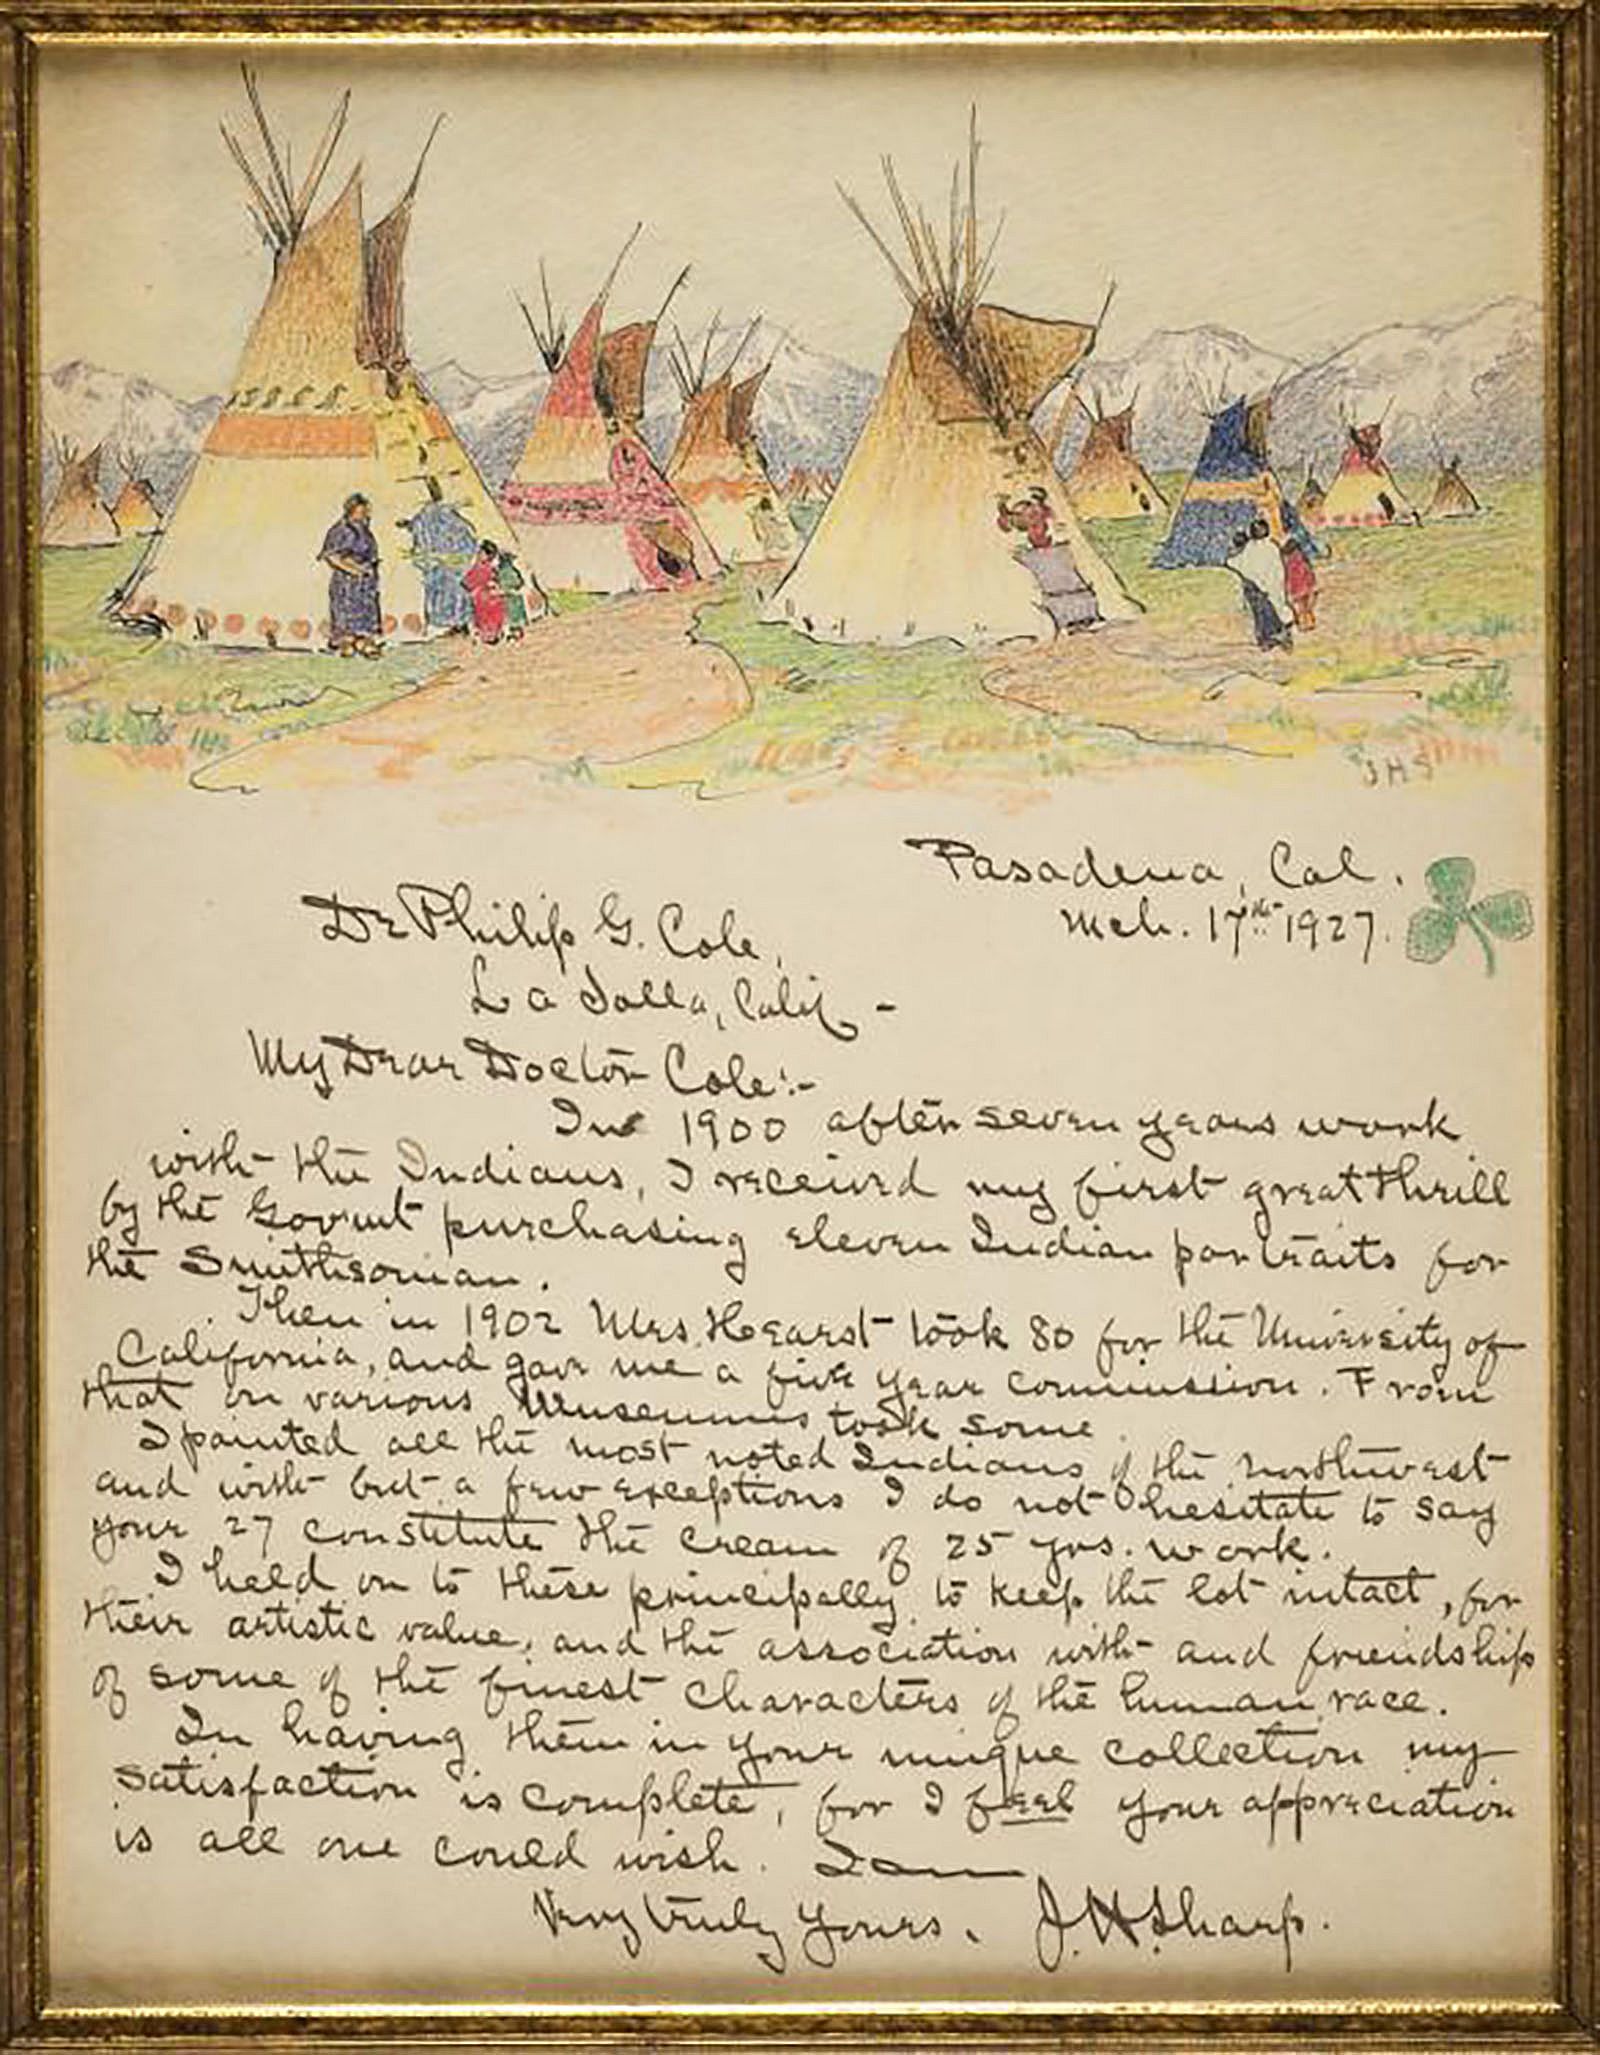 JHS
Pasadena, Cal.
Mch. 17th 1927.
Dr Philip G. Cole,
La Jolla, Calif -
My Dear Doctor Cole:-
In 1900 after seven years work
with the Indians, I received my first great thrill
by the Govm't purchasing eleven Indian portraits for
the Smithsonian.
Then in 1902 Mrs. Hearst took 80 for the University of
California, and gave me a five year commission. From
that on various Museums took some.
I painted all the most noted Indians of the northwest
and with but a few exceptions I do not hesitate to say
your 27 constitute the cream of 25 yrs. work.
I held on to these principally to keep the lot intact, for
their artistic value, and the association with and friendship
of some of the finest characters of the human race.
In having them in your unique collection my
satisfaction is complete, for I feel your appreciation
is all one could wish. I am
Very truly yours, J.H.Sharp.